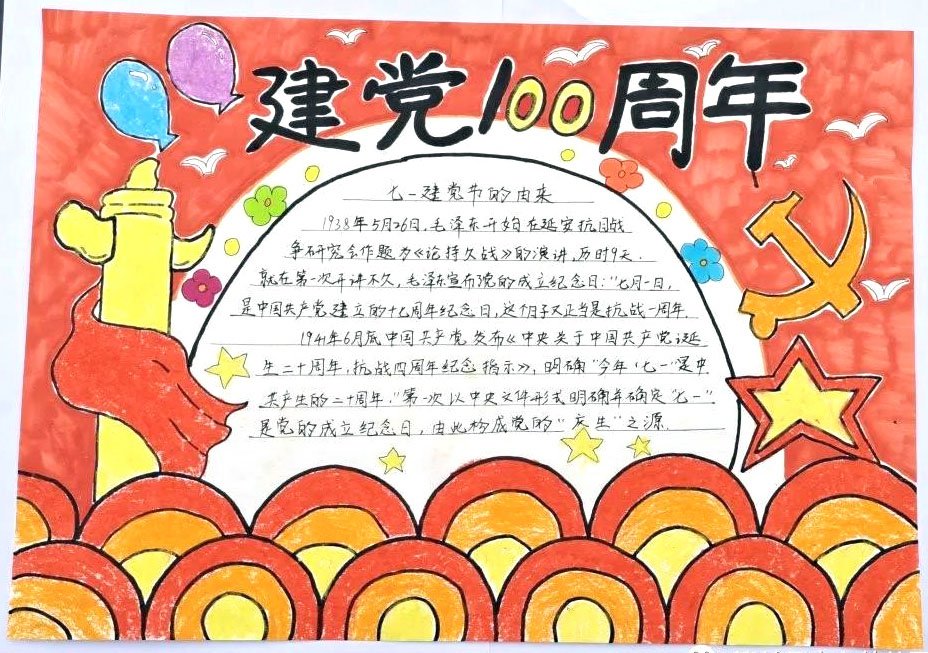 建党100周年
七一建党节的由来
1938年5月26日,毛泽东开始在延安抗日战
争研究会作题为《论持久战》的演讲,历时9天.
就在第一次开讲不久,毛泽东宣布党的成立纪念日:"七月一日,
是中国共产党建立的十七周年纪念日,这个日子又正当是抗战一周年
1941年6月底中国共产党发布《中央关于中国共产党诞
生二十周年,抗战四周年纪念指示》,明确"今年七一"是中
共产生的二十周年,"第一次以中央文件形式明确并确定"七一"
是党的成立纪念日,由此构成党的"庆生"之源.